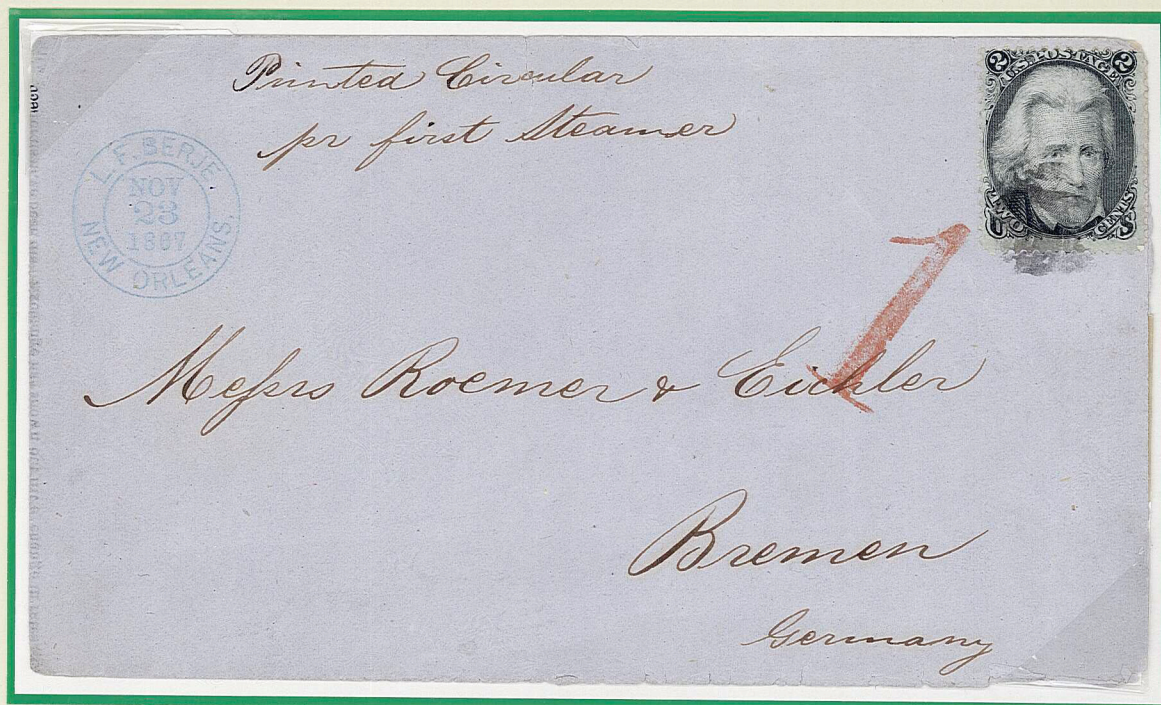 Printed Circular
pr first Steamer
L. F. BERJE
NOV
23
1867
NEW ORLEANS.
2 U.S. POSTAGE 2
TWO CENTS
1
Messrs Roemer & Eichler
Bremen
Germany